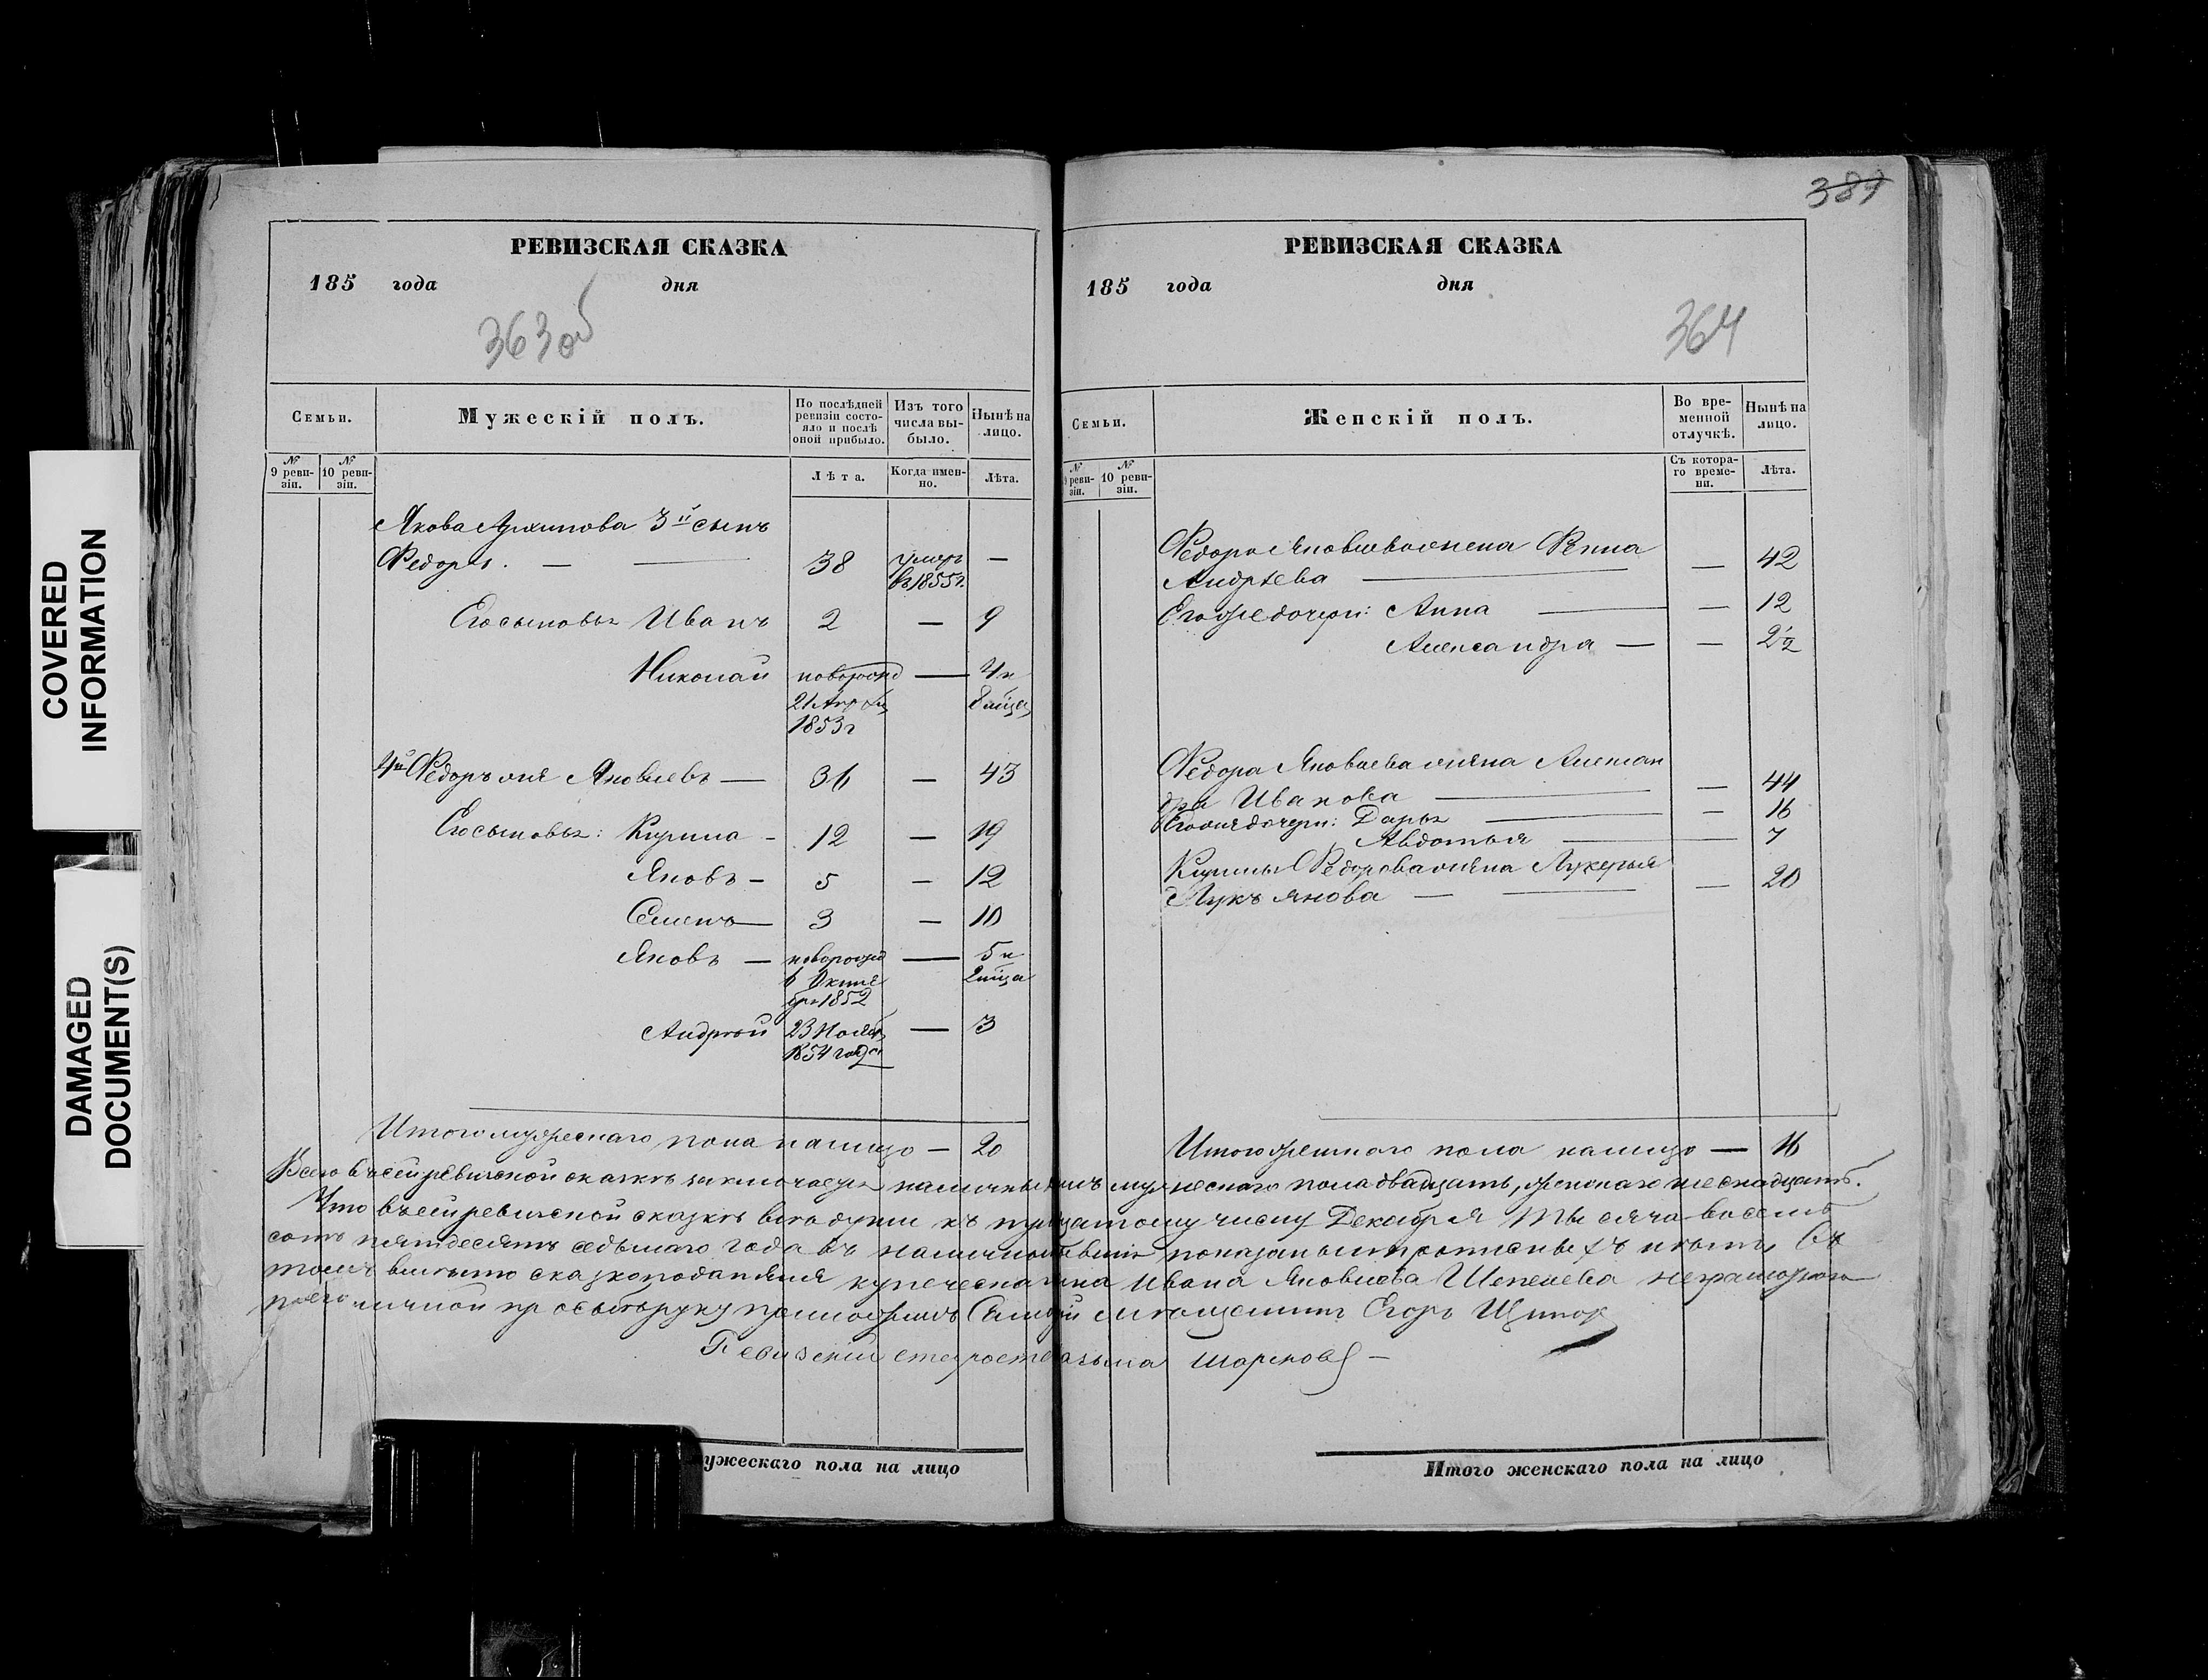 COVERED
INFORMATION
DAMAGED
DOCUMENT(S)
РЕВИЗСКАЯ СКАЗКА
185 года дня
363 об
Семьи.
Мужескій полъ.
По послѣдней
ревизіи состо-
яло и послѣ
оной прибыло.
Изъ того
числа вы-
было.
Нынѣ на
лицо.
№
9 реви-
зіи.
№
10 реви-
зіи.
Лѣта.
Когда имен-
но.
Лѣта.
Якова Архипова 3й сынъ
Федоръ. — — 38 умеръ —
въ 1855 г.
Его сыновья Иванъ 2 — 9
Николай новорожд — 4 и
21 Апрѣля 8 мѣсяц
1853 г
4й Федоръ же Яковлевъ — 36 — 43
Его сыновья: Кирила - 12 — 19
Яковъ — 5 — 12
Семенъ — 3 — 10
Яковъ — новорожд — 5 и
6 Октя 2 мѣсяца
бря 1852
Андрей 23 Нояб — 3
1854 года
Итого мужескаго пола налицо — 20
389
РЕВИЗСКАЯ СКАЗКА
185 года дня
364
Семьи.
Женскій полъ.
Во вре-
менной
отлучкѣ.
Нынѣ на
лицо.
№
9 реви-
зіи.
№
10 реви-
зіи.
Съ котора-
го време-
ни.
Лѣта.
Федора Яковлева жена
Андрѣева — — 42
Его же дочери: Анна — — 12
Александра — — 2½
Федора Яковлева жена Алексан
дра Иванова — — 44
Его же дочери: Дарья — — 16
Авдотья — 7
Кирилы Федорова жена Лукерья
Лукъянова — — — 20
Итого женскаго пола налицо — 16
Всего въ сей ревизской сказкѣ заключается наличныхъ мужескаго пола двадцать, женскаго шеснадцать.
Что въ сей ревизской сказкѣ всѣ души къ тридцатому числу Декабря Тысяча восемь
сотъ пятдесятъ седьмаго года въ наличности показаны и прописныхъ нѣтъ, Въ
томъ вмѣсто сказкоподателя купеческаго сына Ивана Яковлева неграмотнаго
по его личной прозьбѣ руку приложилъ мѣщанинъ Егоръ
Ревизскій староста
ужескаго пола на лицо
Итого женскаго пола на лицо